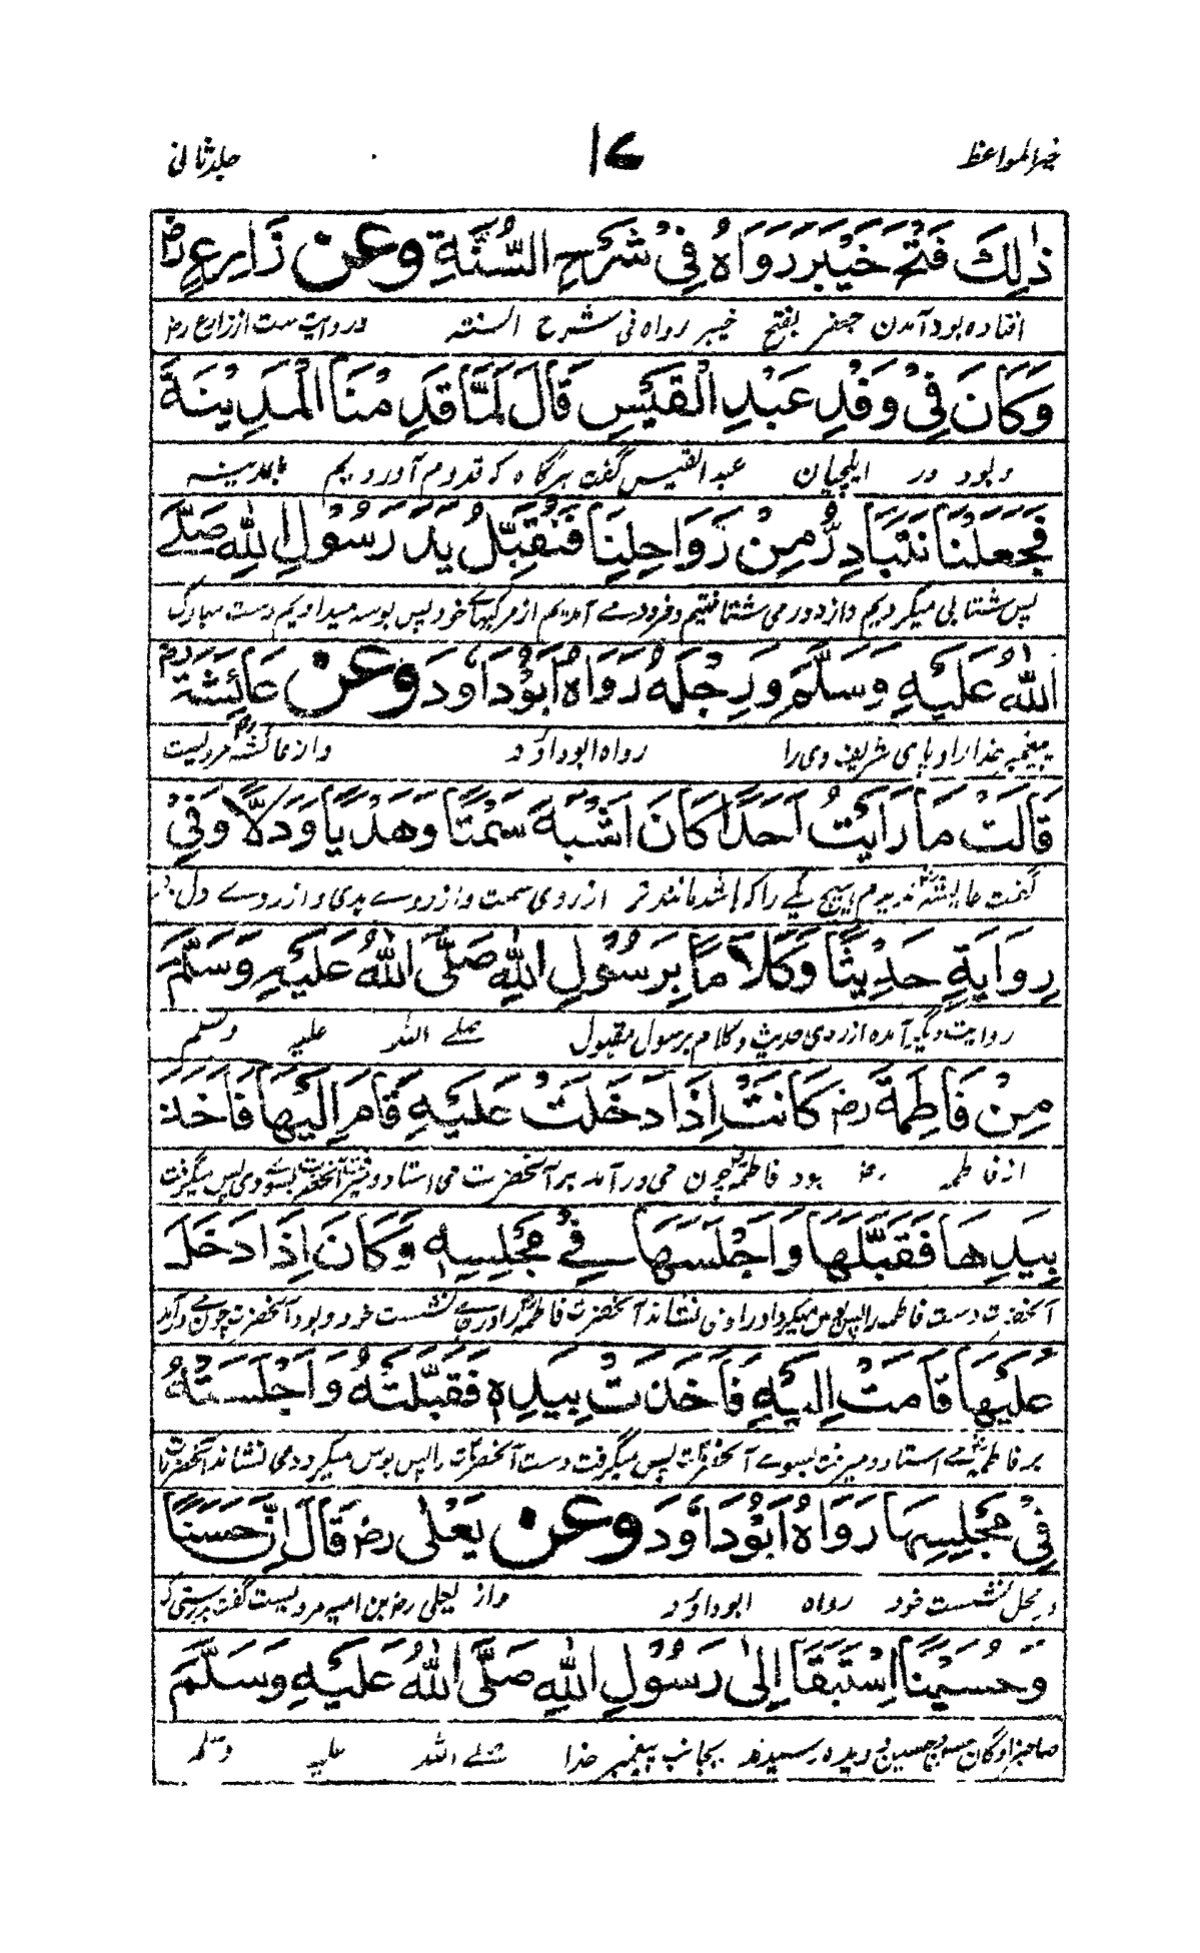 خیر المواعظ ۱۷ جلد ثانی
ذٰلِكَ فَتْحَ خَيْبَرَ رَوَاهُ فِيْ شَرْحِ السُّنَّةِ وَعَنْ زَارِعٍ رض
افتاده بود آمدن جعفر بفتح خیبر رواه فی شرح السنته و روایت ست از زارع رض
وَكَانَ فِيْ وَفْدِ عَبْدِ الْقَيْسِ قَالَ لَمَّا قَدِمْنَا الْمَدِيْنَةَ
و بود در ایلچیان عبد القیس گفت هرگاه که قدوم آوردیم بمدینه
فَجَعَلْنَا نَتَبَادَرُ مِنْ رَوَاحِلِنَا فَنُقَبِّلُ يَدَ رَسُوْلِ اللهِ صَلَّے
پس شتابی میکردیم و از دور می شتافتیم و فرود می آمدیم از مرکبهاے خود پس بوسه میدادیم دست مبارک
اللهُ عَلَيْهِ وَسَلَّمَ وَرِجْلَهُ رَوَاهُ اَبُوْدَاؤدَ وَعَنْ عَائِشَةَ رض
پیغمبر خدا را و پای شریف وی را رواه ابوداؤد و از عائشه رض مرویست
قَالَتْ مَا رَاَيْتُ اَحَدًا كَانَ اَشْبَهَ سَمْتًا وَهَدْيًا وَدَلًّا وَفِيْ
گفت عایشه رض ندیدم هیچ یکے را که باشد مانند تر از روی سمت و از روے هدی و از روے دل
رِوَايَةٍ حَدِيْثًا وَكَلَامًا بِرَسُوْلِ اللهِ صَلَّى اللهُ عَلَيْهِ وَسَلَّمَ
روایت دیگر آمده از روی حدیث و کلام برسول مقبول صلے الله علیه وسلم
مِنْ فَاطِمَةَ رض كَانَتْ اِذَا دَخَلَتْ عَلَيْهِ قَامَ اِلَيْهَا فَاَخَذَ
از فاطمه رض بود فاطمه چون می درآمد بر آنحضرت می استاد و میرفت آنحضرت بسوے وی پس میگرفت
بِيَدِهَا فَقَبَّلَهَا وَاَجْلَسَهَا فِے مَجْلِسِهٖ وَكَانَ اِذَا دَخَلَ
آنحضرت دست فاطمه را پس بوس میکرد او را و می نشاند آنحضرت فاطمه را در جاے نشست خود و بود آنحضرت چون مے درآمد
عَلَيْهَا قَامَتْ اِلَيْهِ فَاَخَذَتْ بِيَدِهٖ فَقَبَّلَتْهُ وَاَجْلَسَتْهُ
بر فاطمه مے استاد و میرفت بسوے آنحضرت پس میگرفت دست آنحضرت را پس بوس میکرد و می نشاند آنحضرت را
فِيْ مَجْلِسِهَا رَوَاهُ اَبُوْدَاؤدَ وَعَنْ يَعْلٰى رض قَالَ اِنَّ حَسَنًا
در محل نشست خود رواه ابوداؤد و از یعلی رض بن امیه مرویست گفت بدرستی که
وَحُسَيْنًا اِسْتَبَقَا اِلٰى رَسُوْلِ اللهِ صَلَّى اللهُ عَلَيْهِ وَسَلَّمَ
صاحبزادگان حسن و حسین دویده رسیدند بجانب پیغمبر خدا صلے الله علیه وسلم